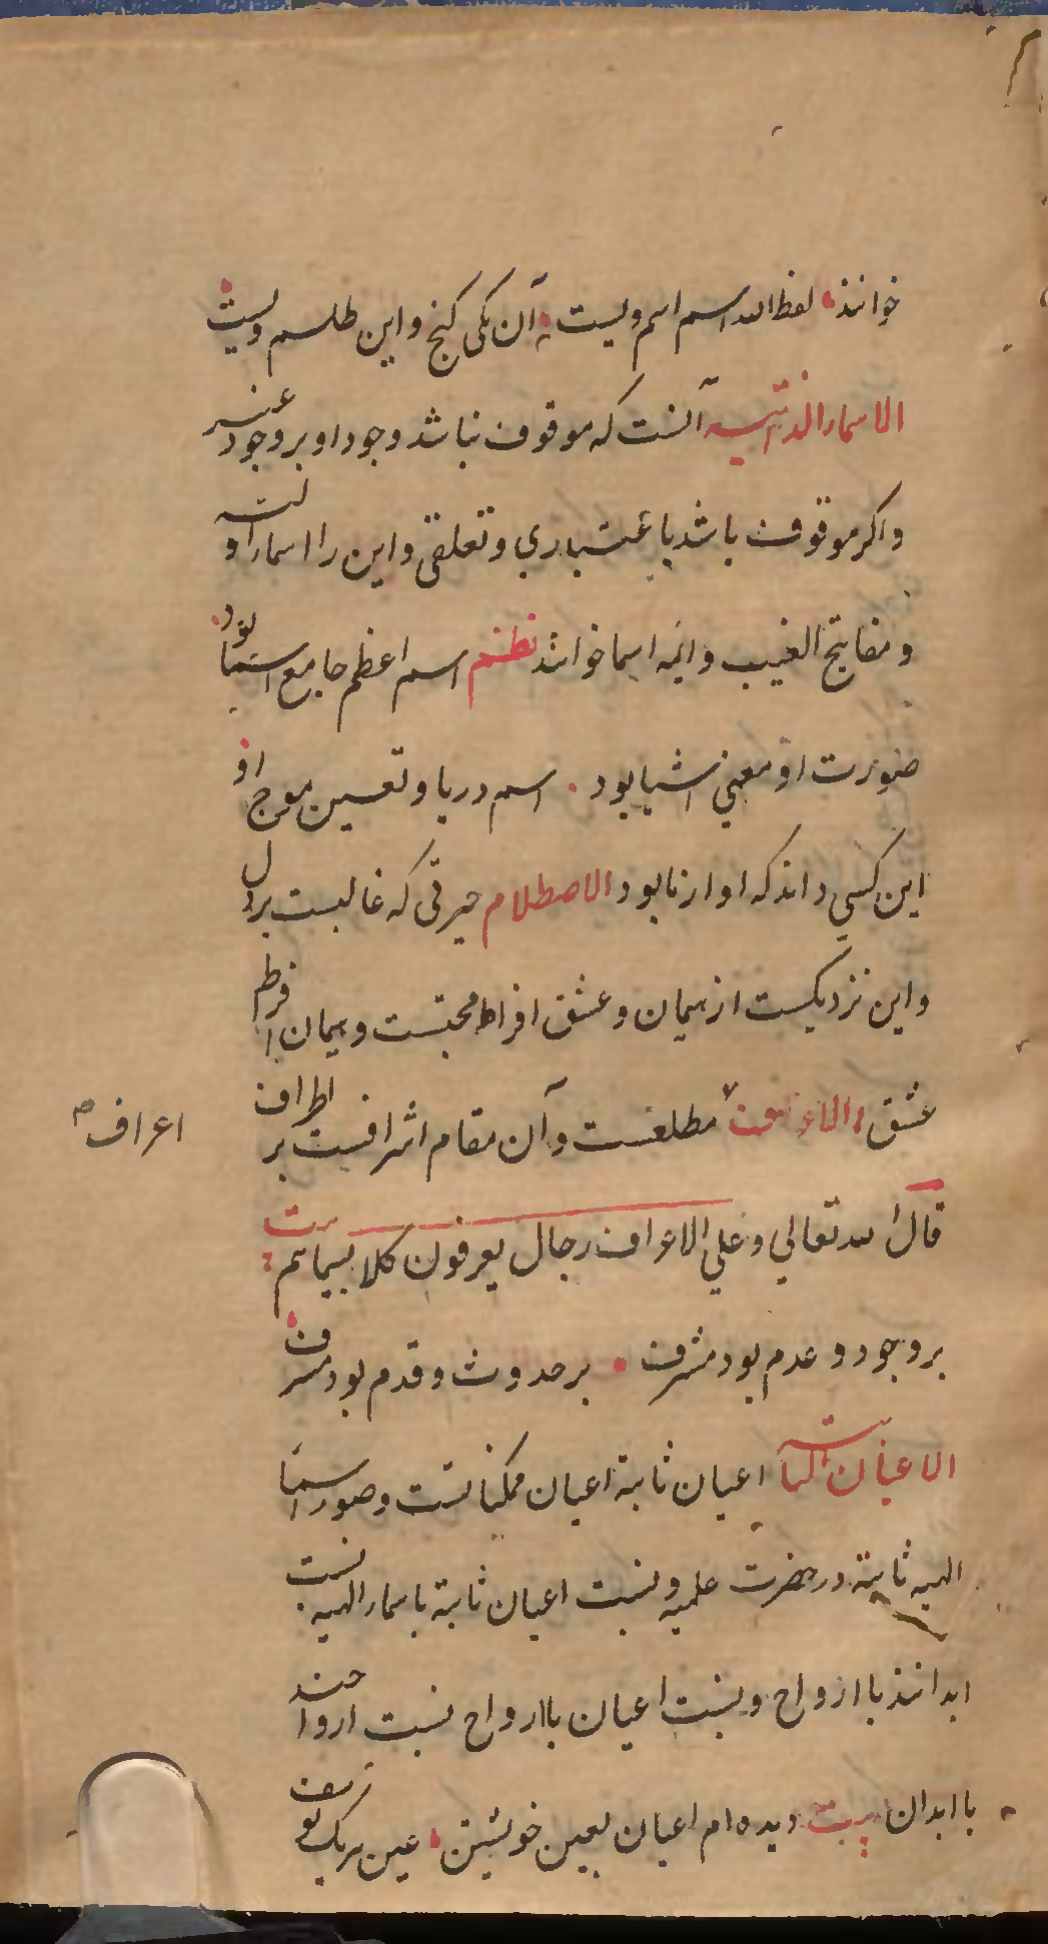 خوانند لفظ الله اسم اسم ویست آن یکی کنج و این طلسم ویست
الاسماء الذاتیه آنست که موقوف نباشد وجود او بر وجود غیر
و اکر موقوف باشد باعتباری و تعلقی و این را اسماء اولیه
و مفاتیح الغیب و ائمه اسما خوانند نظم اسم اعظم جامع اسما بود
صورت او معنی اشیا بود اسم دریا و تعین موج او
این کسی داند که او از ما بود الاصطلام حیرتی که غالبست بر دل
و این نزدیکست از هیمان و عشق افراط محبتست و هیمان افرط
عشق الاعراف مطلعست و آن مقام اشرافست بر اطراف
اعراف
قال الله تعالی و علی الاعراف رجال یعرفون کلا بسیماهم بیت
بر وجود و عدم بود مشرف بر حدوث و قدم بود مشرف
الاعیان الثابته اعیان ثابته اعیان ممکناتست و صور اسما
الهیه ثابته در حضرت علمیه و نسبت اعیان ثابته باسماء الهیه نسبت
ابدانند با ارواح و نسبت اعیان باارواح نسبت ارواحند
با ابدان بیت دیده ام اعیان بعین خویشتن عین هر یک